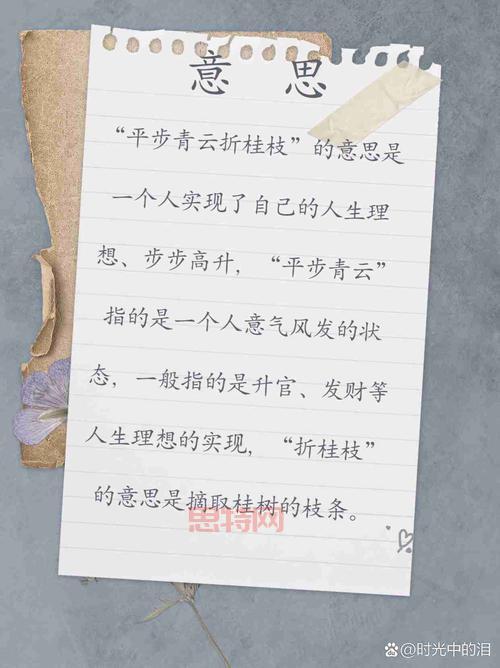 意 思
“平步青云折桂枝”的意思是
一个人实现了自己的人生理
想、步步高升，“平步青云”
指的是一个人意气风发的状
态，一般指的是升官、发财等
人生理想的实现，“折桂枝”
的意思是摘取桂树的枝条。
思特网
@时光中的泪